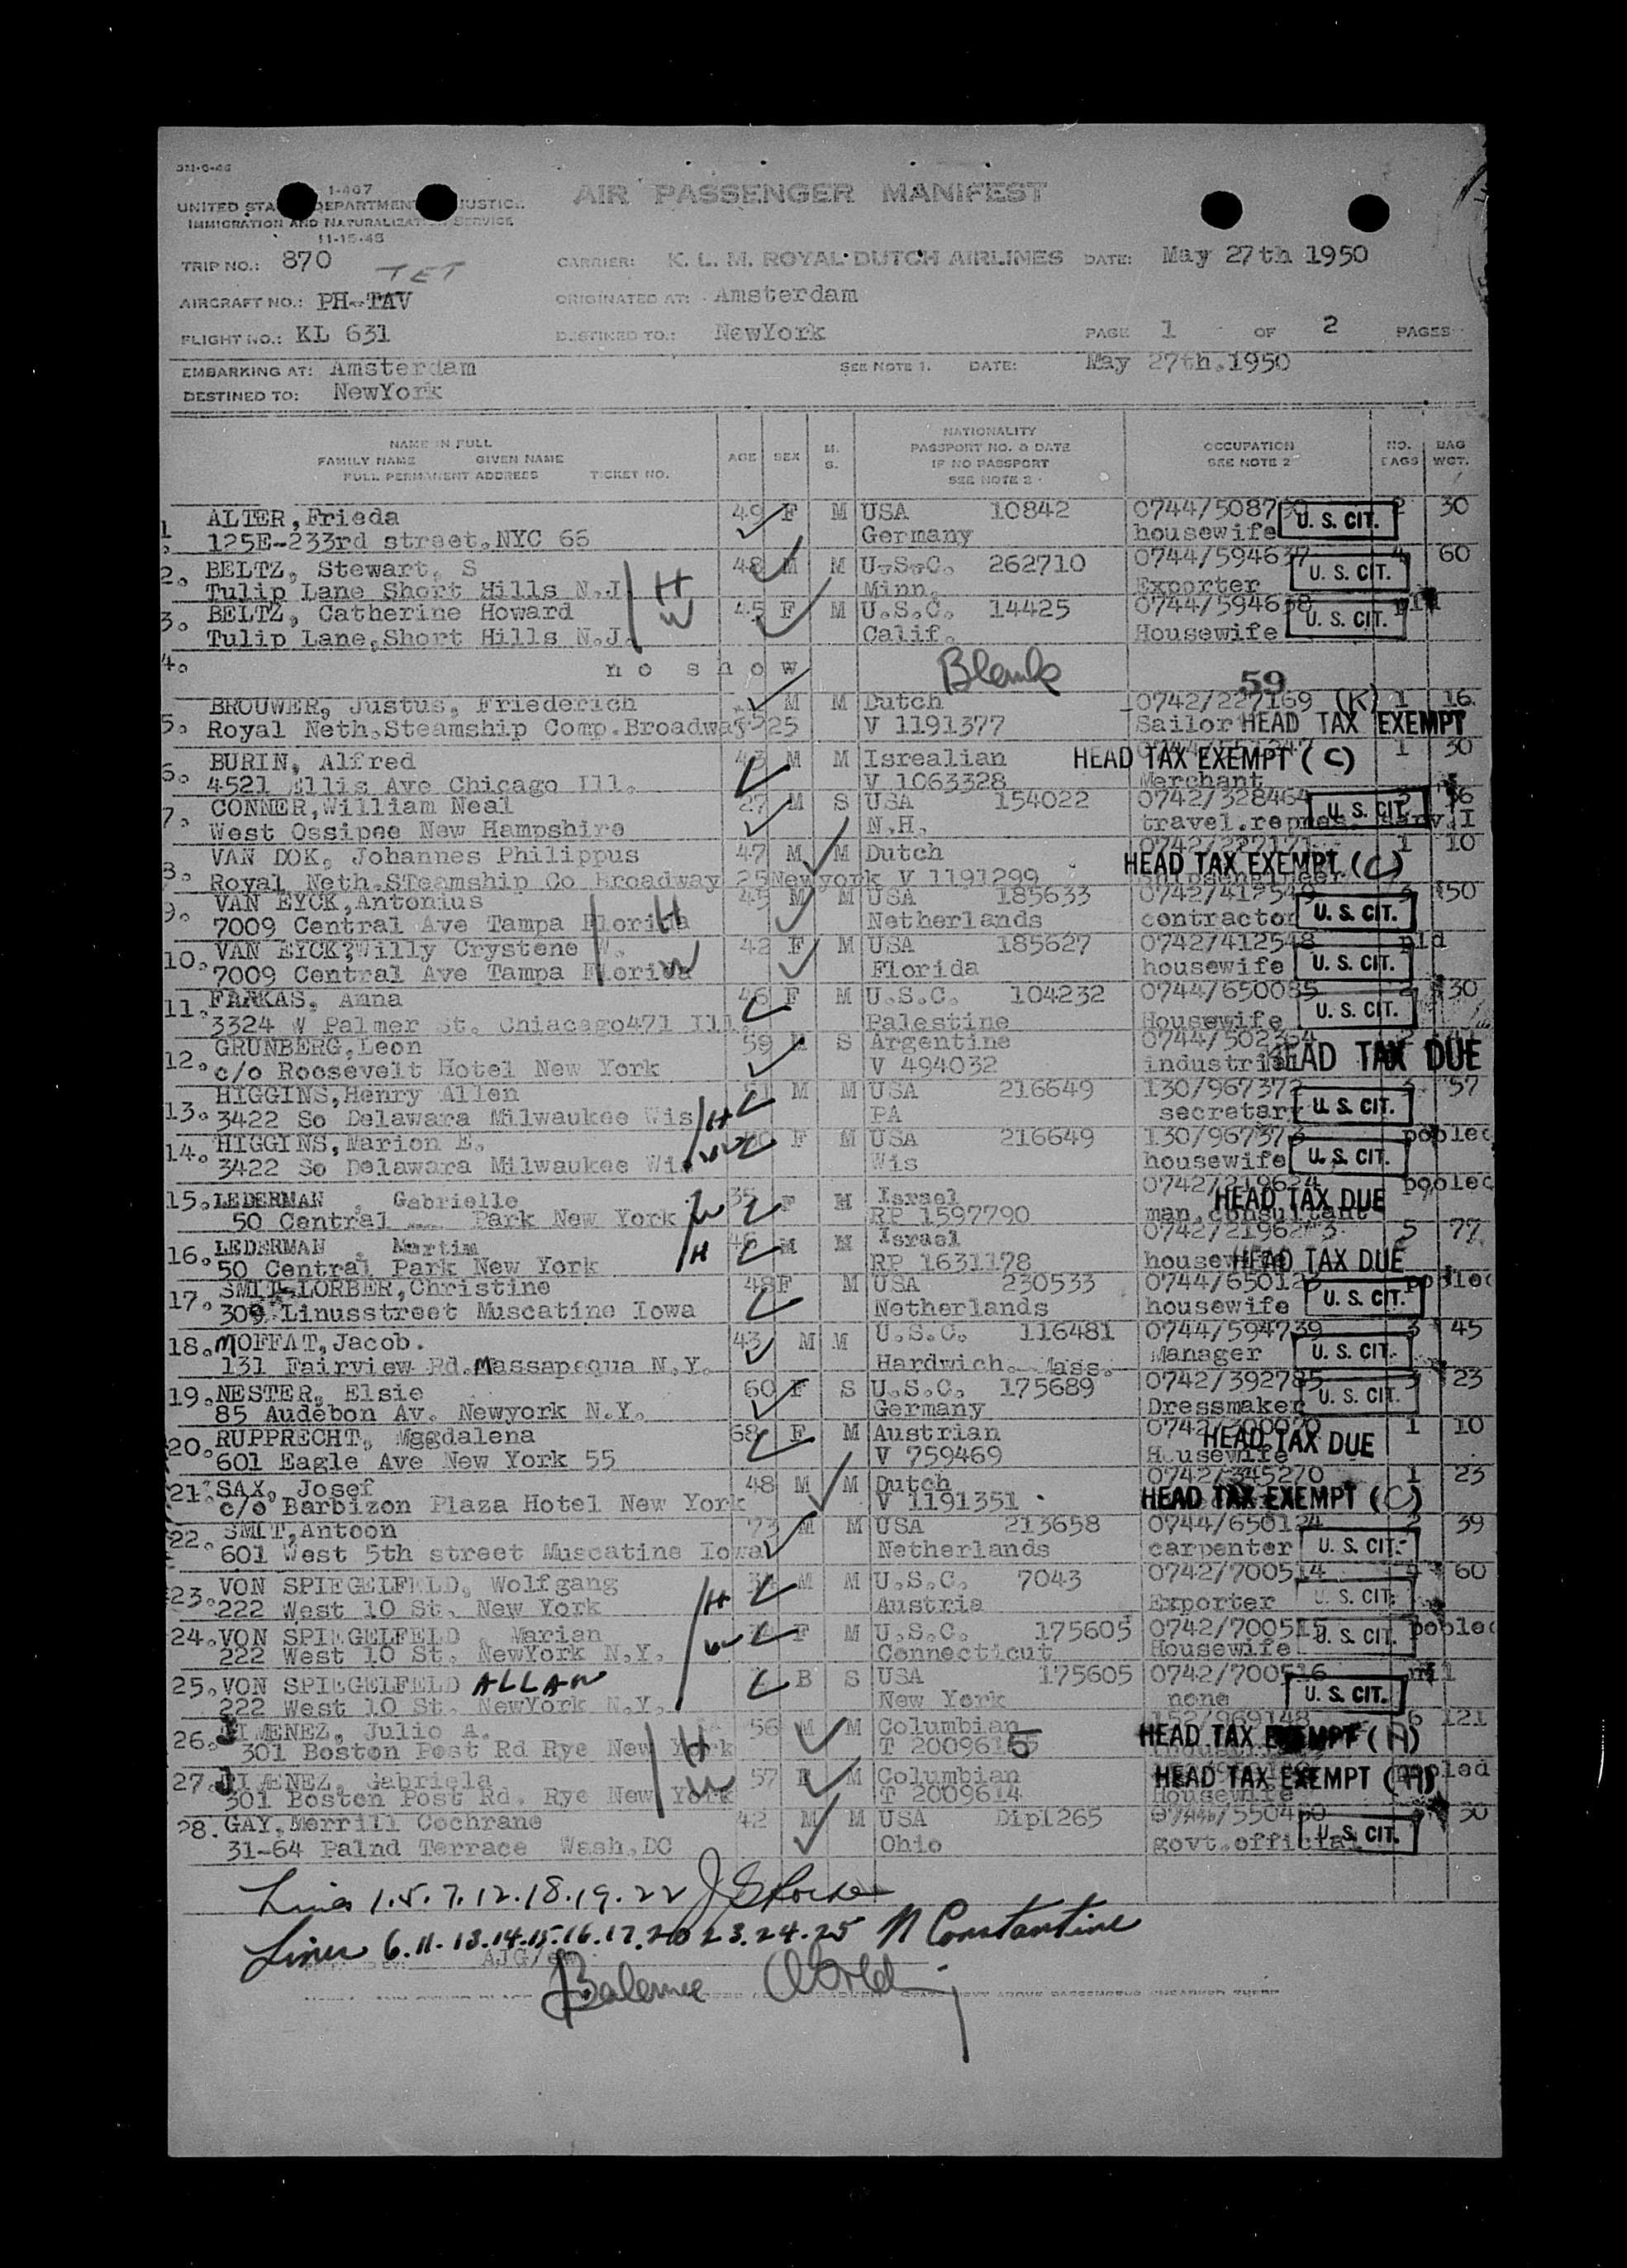 I-467
UNITED STA DEPARTMENT JUSTICE
IMMIGRATION AND NATURALIZAT SERVICE
11-15-48
AIR PASSENGER MANIFEST
TRIP NO.: 870 CARRIER: K. L. M. ROYAL DUTCH AIRLINES DATE: May 27th 1950
TET
AIRCRAFT NO.: PH-TAV ORIGINATED AT: Amsterdam
FLIGHT NO.: KL 631 DESTINED TO: NewYork PAGE 1 OF 2 PAGES
EMBARKING AT: Amsterdam SEE NOTE 1. DATE: May 27th.1950
DESTINED TO: NewYork
NAME IN FULL
FAMILY NAME GIVEN NAME
FULL PERMANENT ADDRESS TICKET NO.
AGE SEX M. S.
NATIONALITY
PASSPORT NO. & DATE
IF NO PASSPORT
SEE NOTE 2
OCCUPATION
SEE NOTE 2
NO. BAGS
BAG WGT.
1. ALTER,Frieda 49 F M USA 10842 0744/5087 2 30
125E-233rd street.NYC 66 Germany housewife U. S. CIT.
2. BELTZ, Stewart, S 48 M M U.S.C. 262710 0744/594637 4 60
Tulip Lane Short Hills N.J H Minn. Exporter U. S. CIT.
3. BELTZ, Catherine Howard W 45 F M U.S.C. 14425 0744/594638 pld
Tulip Lane,Short Hills N.J. Calif. Housewife U. S. CIT.
4. no show Blank 59
BROUWER, Justus, Friederich M M Dutch 0742/227169 (K) 1 16
5. Royal Neth.Steamship Comp.Broadway 25 V 1191377 Sailor HEAD TAX EXEMPT
6. BURIN, Alfred 43 M M Isrealian HEAD TAX EXEMPT (C) 1 30
4521 Ellis Ave Chicago Ill. V 1063328 Merchant
7. CONNER,William Neal 27 M S USA 154022 0742/328464 U. S. CIT.
West Ossipee New Hampshire N.H. travel.repres.
8. VAN DOK, Johannes Philippus 47 M M Dutch 0742/227171 1 10
Royal Neth.STeamship Co Broadway 25Newyork V 1191299 HEAD TAX EXEMPT (C)
9. VAN EYCK,Antonius 45 M M USA 185633 0742/412549 3 50
7009 Central Ave Tampa Florida H Netherlands contractor U. S. CIT.
10. VAN EYCK,Willy Crystene W. 42 F M USA 185627 0742/412548 pld
7009 Central Ave Tampa Florida W Florida housewife U. S. CIT.
11. FARKAS, Anna 46 F M U.S.C. 104232 0744/650085 30
3324 W Palmer St. Chiacago471 Ill. Palestine Housewife U. S. CIT.
12. GRUNBERG,Leon 59 M S Argentine 0744/502354 2 44
c/o Roosevelt Hotel New York V 494032 industrial HEAD TAX DUE
13. HIGGINS,Henry Allen 51 M M USA 216649 130/967372 3 57
3422 So Delawara Milwaukee Wis H PA secretary U. S. CIT.
14. HIGGINS,Marion E. W F M USA 216649 130/967373 pooled
3422 So Delawara Milwaukee Wi. Wis housewife U. S. CIT.
15. LEDERMAN , Gabrielle W 35 F M Israel 0742/219624 pooled
50 Central Park New York RP 1597790 man.consultant HEAD TAX DUE
16. LEDERMAN , Martim H M M Israel 0742/219623 5 77
50 Central Park New York RP 1631178 housewife HEAD TAX DUE
17. SMIT-LORBER,Christine 48F M USA 230533 0744/650123 pooled
309 Linusstreet Muscatine Iowa Netherlands housewife U. S. CIT.
18. MOFFAT,Jacob. 43 M M U.S.C. 116481 0744/594739 3 45
131 Fairview Rd.Massapequa N.Y. Hardwich. Mass. Manager U. S. CIT.
19. NESTER, Elsie 60 F S U.S.C. 175689 0742/392785 3 23
85 Audebon Av. Newyork N.Y. Germany Dressmaker U. S. CIT.
20. RUPPRECHT, Magdalena 68 F M Austrian 0742/300070 1 10
601 Eagle Ave New York 55 V 759469 Housewife HEAD TAX DUE
21. SAX, Josef 48 M M Dutch 0742/345270 1 23
c/o Barbizon Plaza Hotel New York V 1191351 HEAD TAX EXEMPT (C)
22. SMIT,Antoon 73 M M USA 213658 0744/650124 2 39
601 West 5th street Muscatine Iowa Netherlands carpenter U. S. CIT.
23. VON SPIEGELFELD, Wolfgang M M U.S.C. 7043 0742/700514 4 60
222 West 10 St. New York H Austria Exporter U. S. CIT.
24. VON SPIEGELFELD , Marian W F M U.S.C. 175605 0742/700515 pooled
222 West 10 St. NewYork N.Y. Connecticut Housewife U. S. CIT.
25. VON SPIEGELFELD ALLAN B S USA 175605 0742/700516 nil
222 West 10 St. NewYork N.Y. New York none U. S. CIT.
26. JIMENEZ, Julio A. H 56 M M Columbian 152/969148 6 121
301 Boston Post Rd Rye New York T 2009615 HEAD TAX EXEMPT (H)
27. JIMENEZ, Gabriela W 57 F M Columbian pooled
301 Boston Post Rd. Rye New York T 2009614 Housewife HEAD TAX EXEMPT (H)
28. GAY,Merrill Cochrane 42 M M USA Dipl265 30
31-64 Palnd Terrace Wash.DC Ohio govt.official U. S. CIT.
Lines 1.5.7.12.18.19.22
Lines 6.11.13.14.15.16.17.20 23.24.25 N Constantine
AJG/
Balance